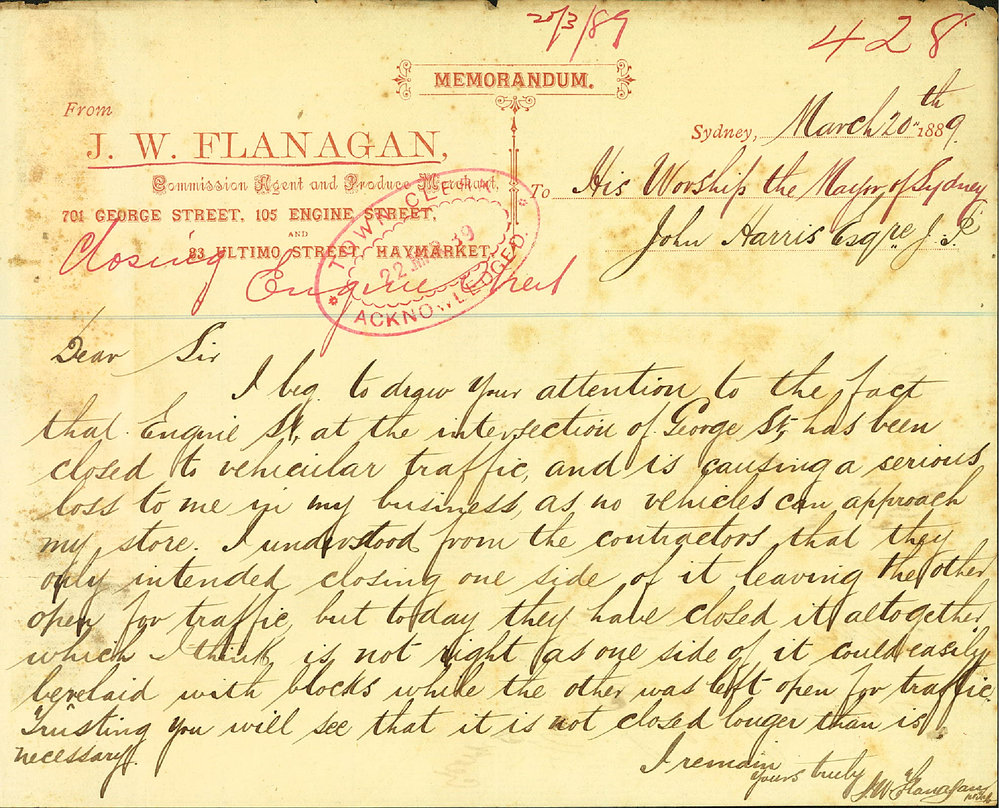 20/3/89
428
MEMORANDUM.
From
J. W. FLANAGAN,
Commission Agent and Produce Merchant,
701 GEORGE STREET, 105 ENGINE STREET,
AND
83 ULTIMO STREET, HAYMARKET,
Sydney, March 20th 1889.
To His Worship the Mayor of Sydney
John Harris Esqre J.P.
Closing
Engine Street
TOWN CLERK
22
89
ACKNOWLEDGED.
Dear Sir
I beg to draw your attention to the fact
that Engine St, at the intersection of George St, has been
closed to vehicular traffic, and is causing a serious
loss to me in my business, as no vehicles can approach
my store. I understood from the contractors that they
only intended closing one side of it leaving the other
open for traffic, but today they have closed it altogether
which I think is not right as one side of it could easily
be relaid with blocks while the other was left open for traffic.
Trusting you will see that it is not closed longer than is
necessary.
I remain
yours truly
J. W. Flanagan